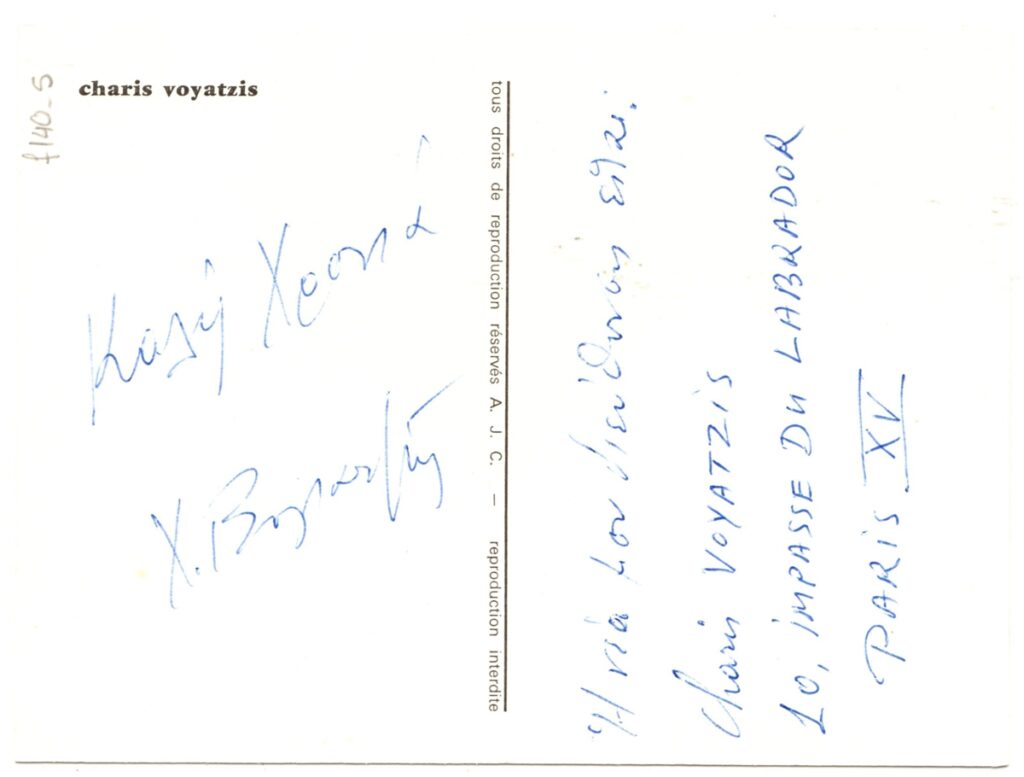 charis voyatzis
f140-5
Καλή Χρονιά
Χ. Βογιατζής
tous droits de reproduction réservés A. J. C. — reproduction interdite
Ἡ νέα μου διεύθυνσις εἶναι:
Charis VOYATZIS
10, IMPASSE DU LABRADOR
PARIS XV